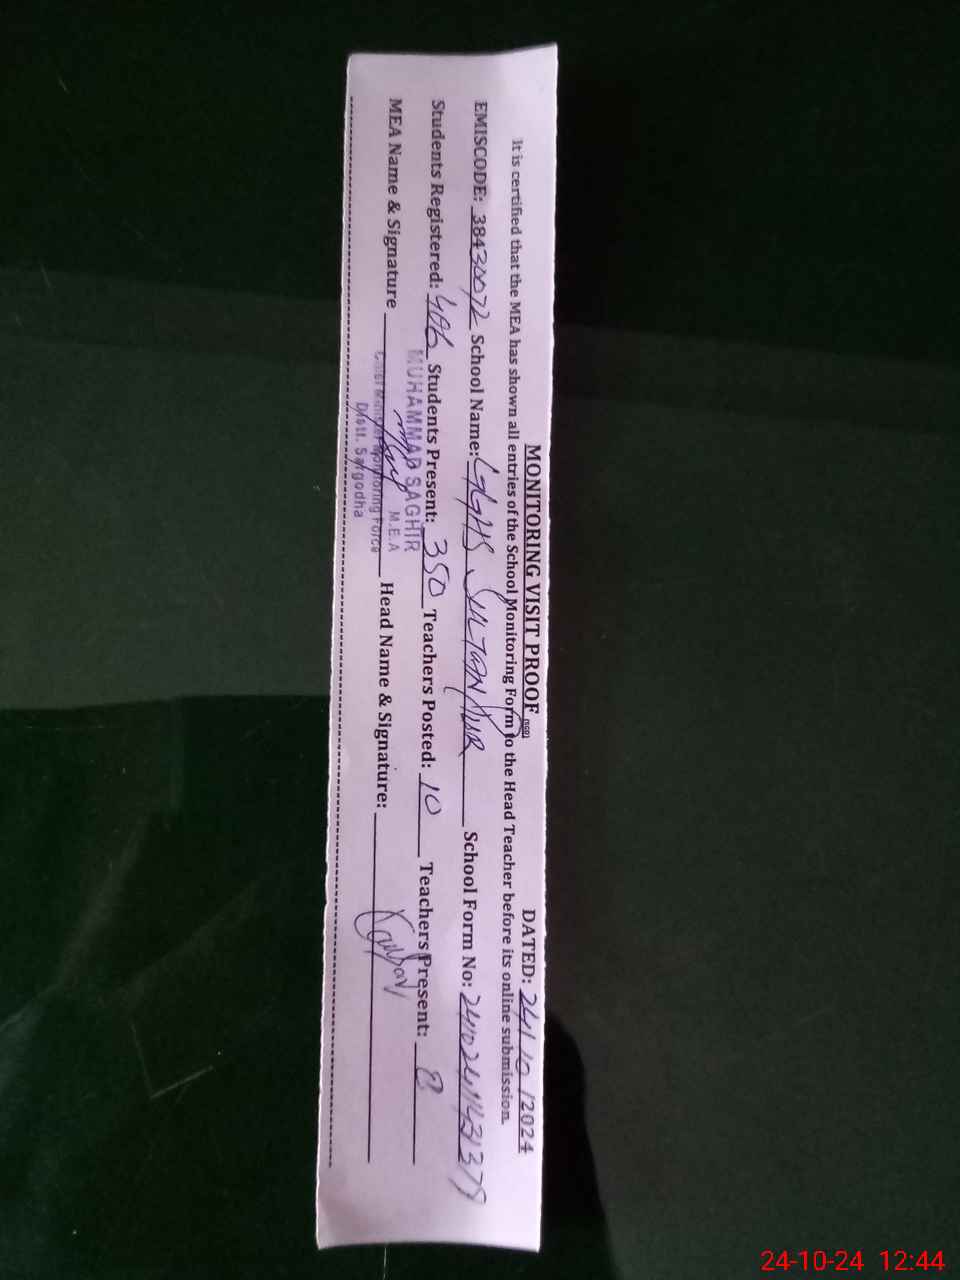 MONITORING VISIT PROOF DATED: 24/10/2024
It is certified that the MEA has shown all entries of the School Monitoring Form to the Head Teacher before its online submission.
EMISCODE: 38430072 School Name: GGHS SULTANPUR School Form No:
Students Registered: 406 Students Present: 350 Teachers Posted: 10 Teachers Present: 8
MEA Name & Signature Head Name & Signature:
MUHAMMAD SAGHIR
M.E.A
Chief Minister Monitoring Force
Distt. Sargodha
24-10-24 12:44